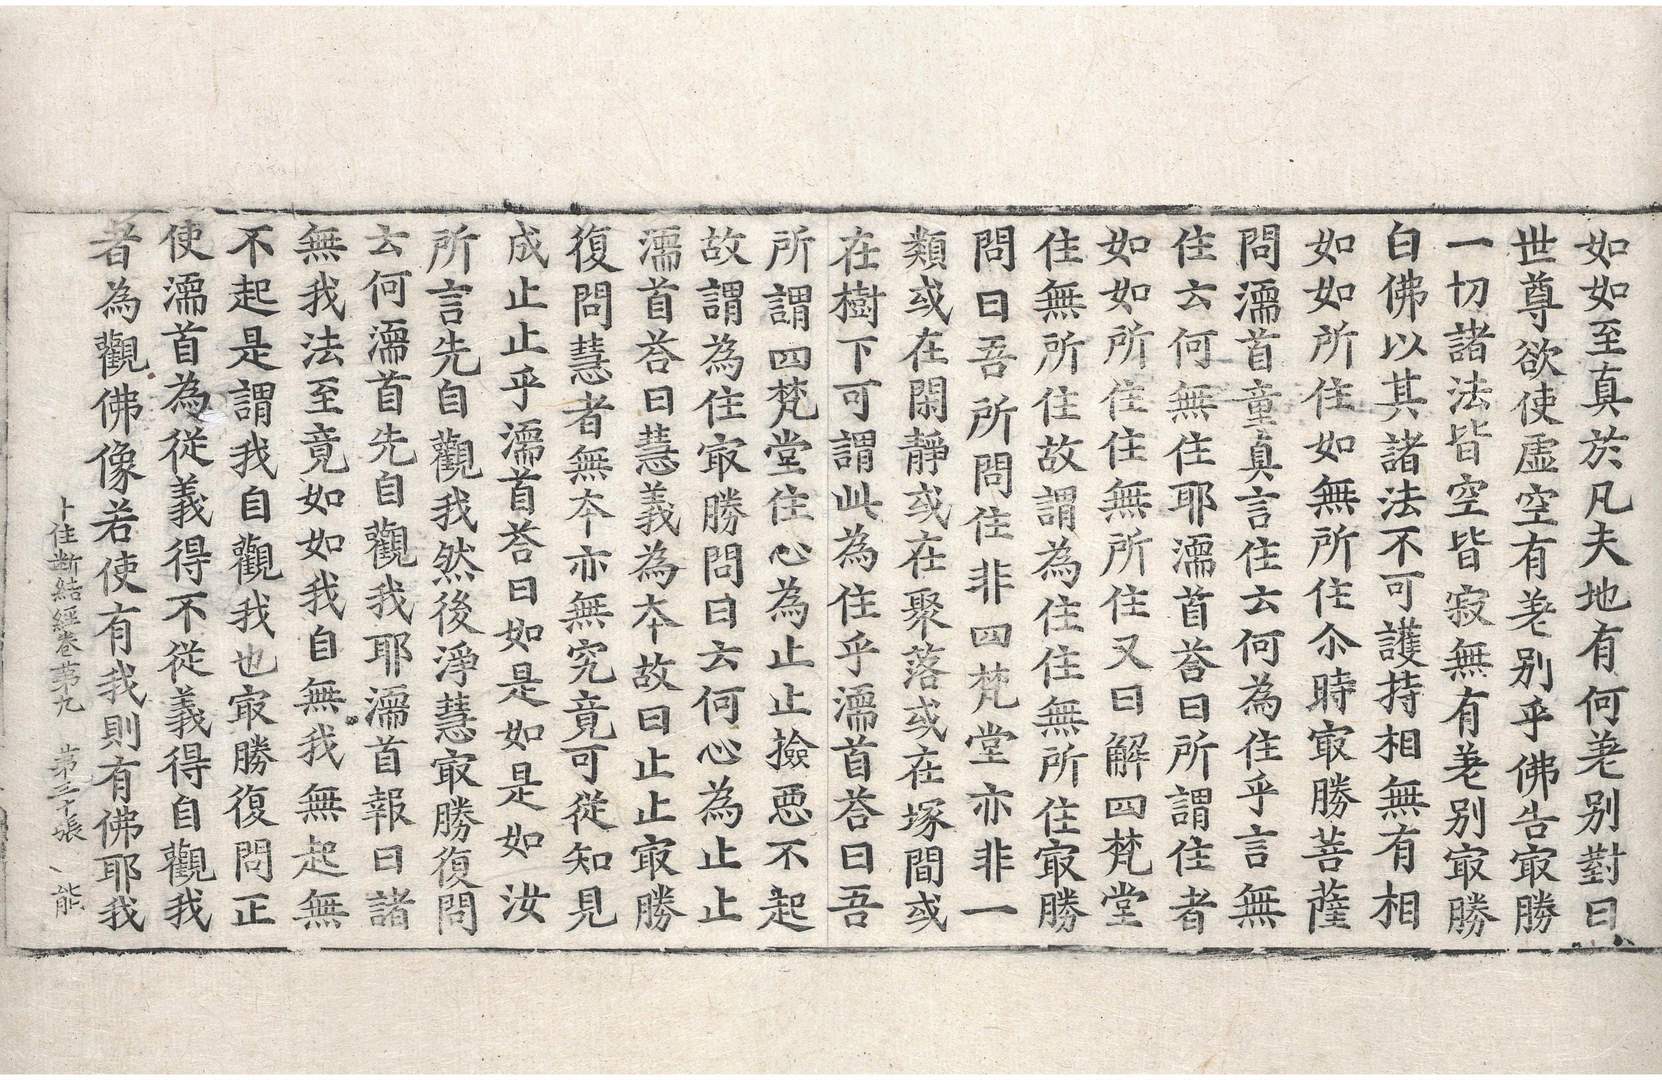 如如至真於凡夫地有何差別對曰
世尊欲使虛空有差別乎佛告㝡勝
一切諸法皆空皆寂無有差別㝡勝
白佛以其諸法不可護持相無有相
如如所住如無所住尒時㝡勝菩薩
問濡首童真言住云何為住乎言無
住云何無住耶濡首荅曰所謂住者
如如所住住無所住又曰解四梵堂
住無所住故謂為住住無所住㝡勝
問曰吾所問住非四梵堂亦非一
類或在閑靜或在聚落或在塚間或
在樹下可謂此為住乎濡首荅曰吾
所謂四梵堂住心為止止撿惡不起
故謂為住㝡勝問曰云何心為止止
濡首荅曰慧義為夲故曰止止㝡勝
復問慧者無夲亦無究竟可從知見
成止止乎濡首荅曰如是如是如汝
所言先自觀我然後淨慧㝡勝復問
云何濡首先自觀我耶濡首報曰諸
無我法至竟如如我自無我無起無
不起是謂我自觀我也㝡勝復問正
使濡首為從義得不從義得自觀我
者為觀佛像若使有我則有佛耶我
十住斷結經卷第九 第三十張 能